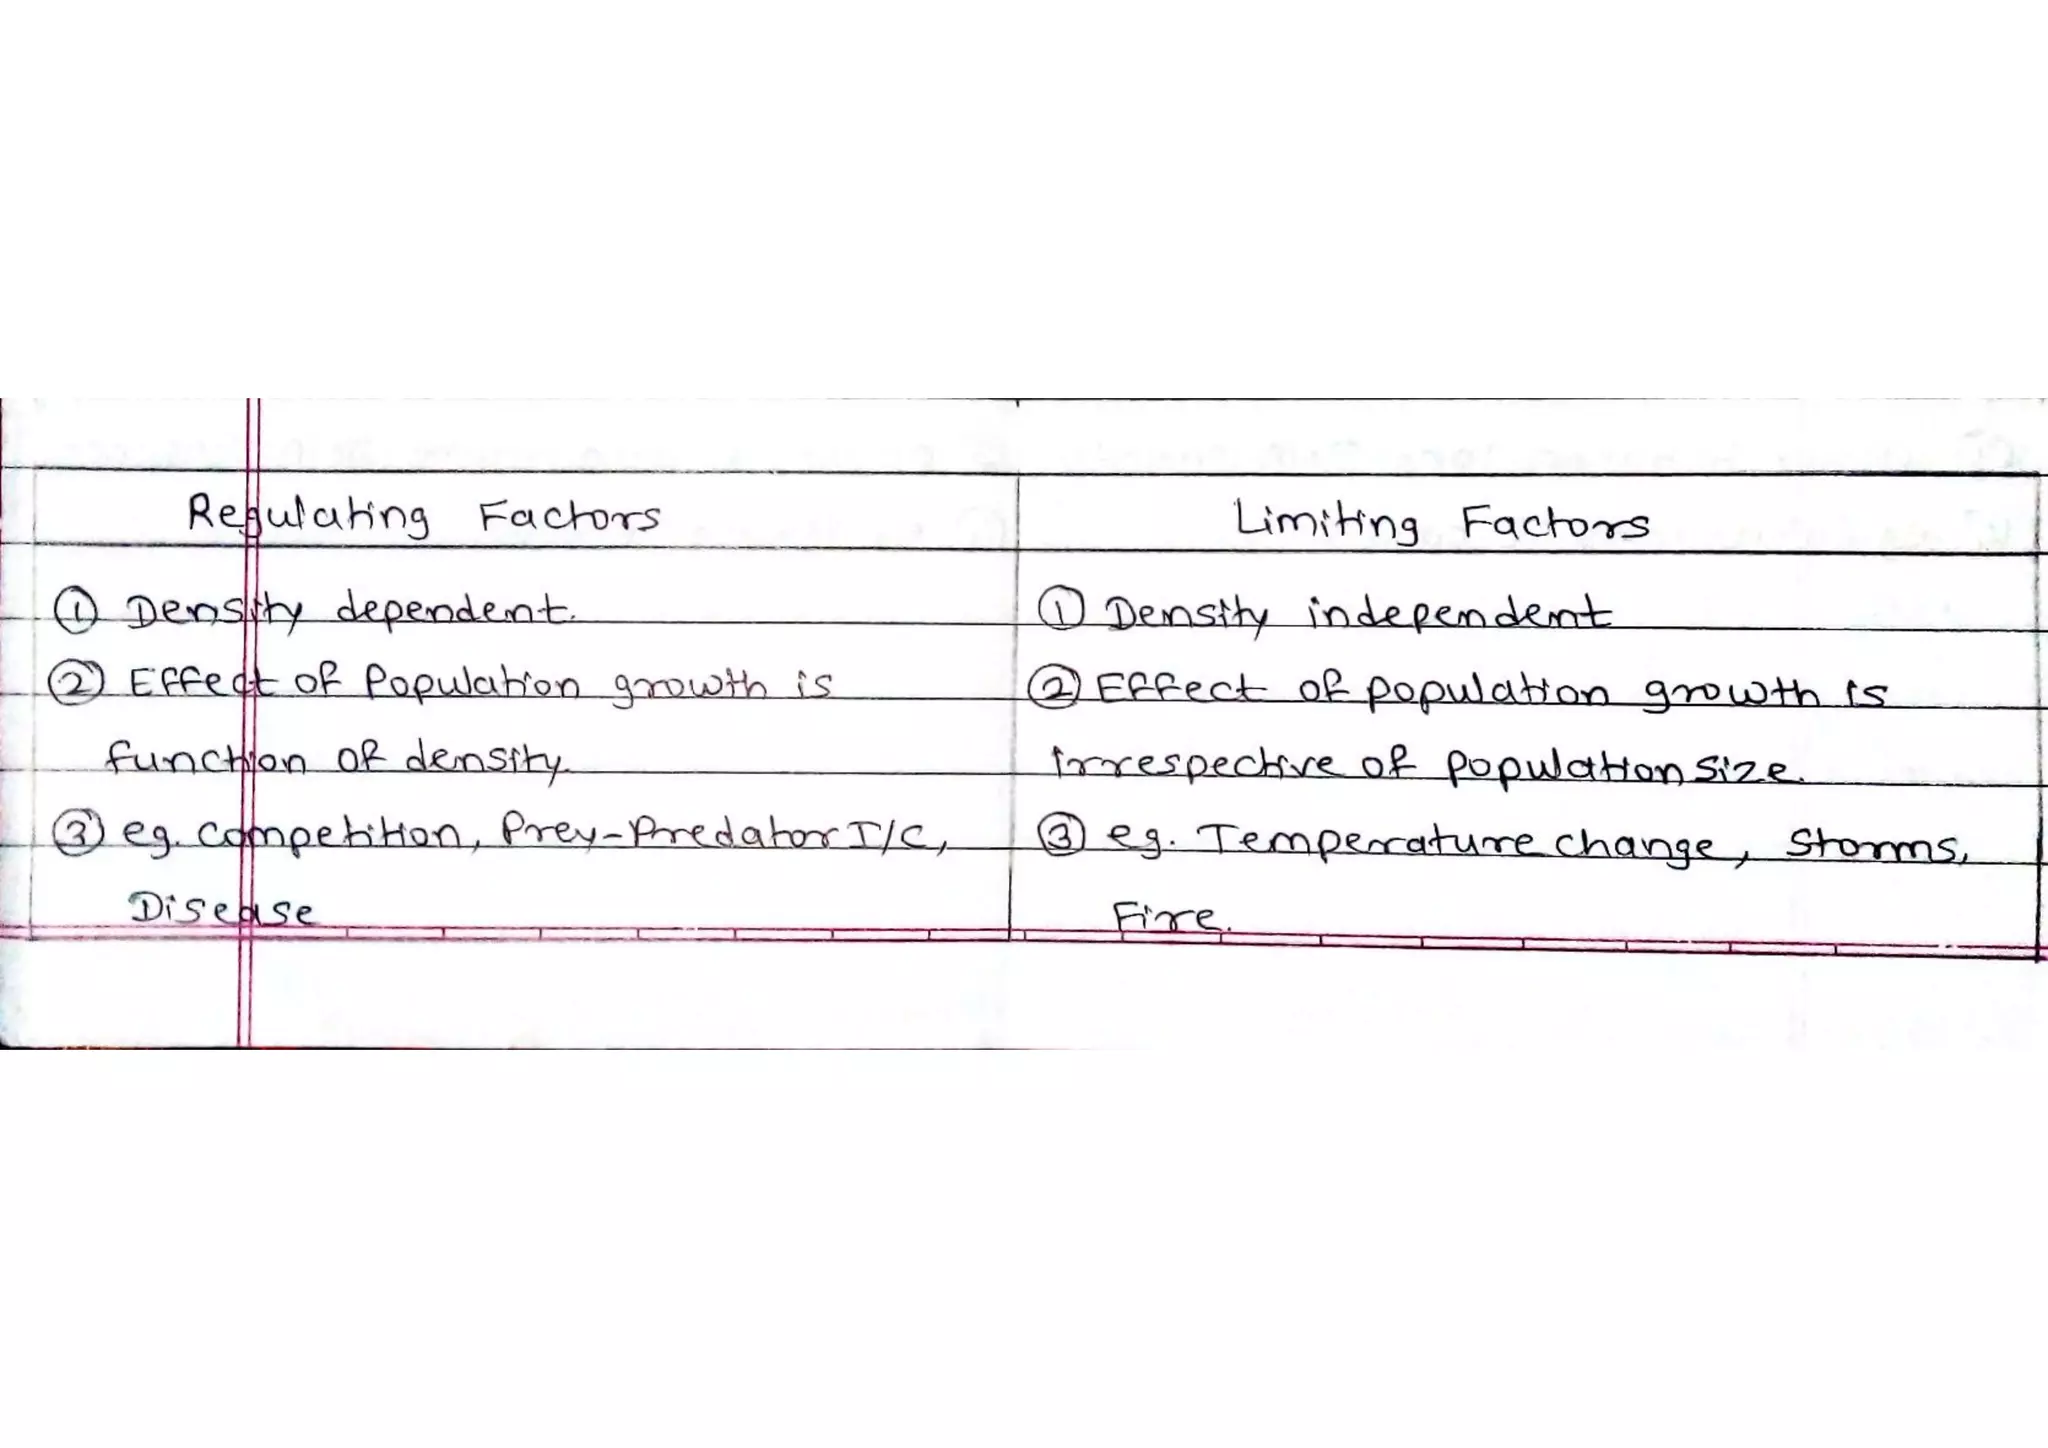 Regulating Factors
Limiting Factors
① Density dependent.
② Effect of Population growth is
function of density.
③ eg. Competition, Prey-Predator I/C,
Disease
① Density independent
② Effect of population growth is
irrespective of population size.
③ eg. Temperature change, Storms,
Fire.